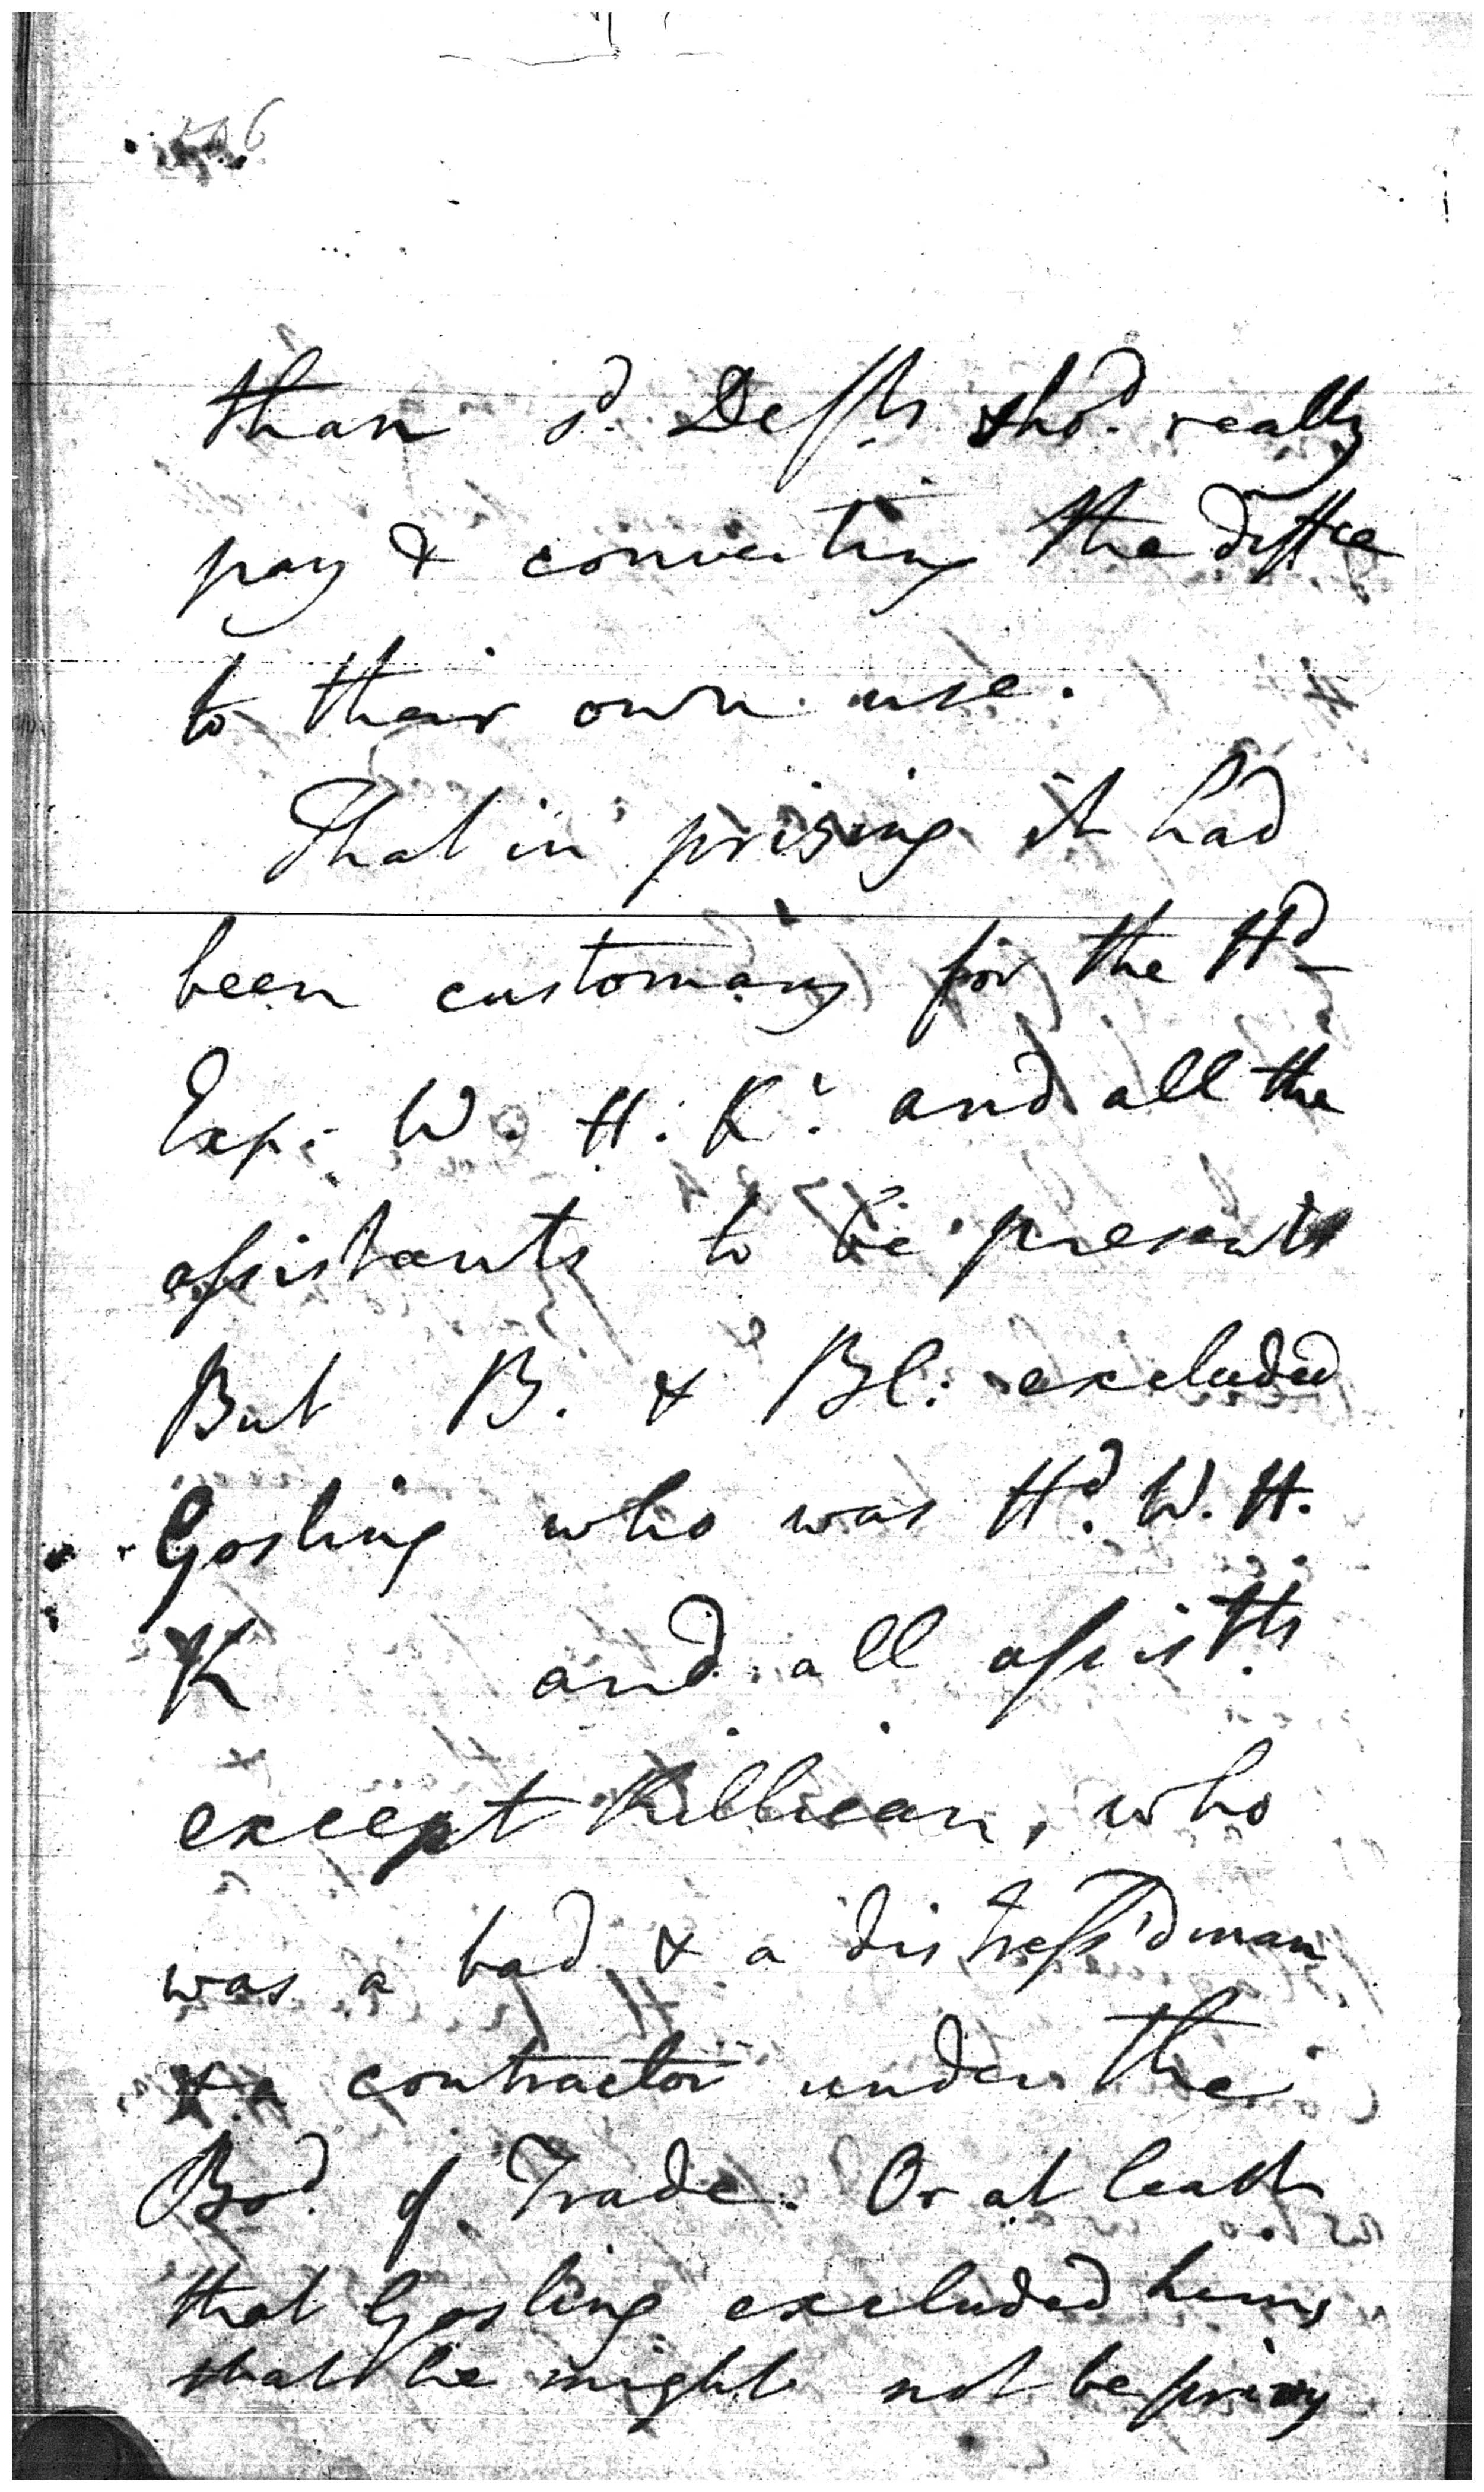 than sd. Defts shod. really
pay & converting the diffce
to their own use.
That in prising it had
been customary for the Hd
Exp: W. H. Kr. and all the
assistants to be present
But B. & Bl: excluded
Gosling who was Hd. W. H.
K and all assistts
except Killican, who
was a bad & a distress'd man
& a contractor under the
Bod. of Trade. Or at least
that Gosling excluded hims
that he might not be privy